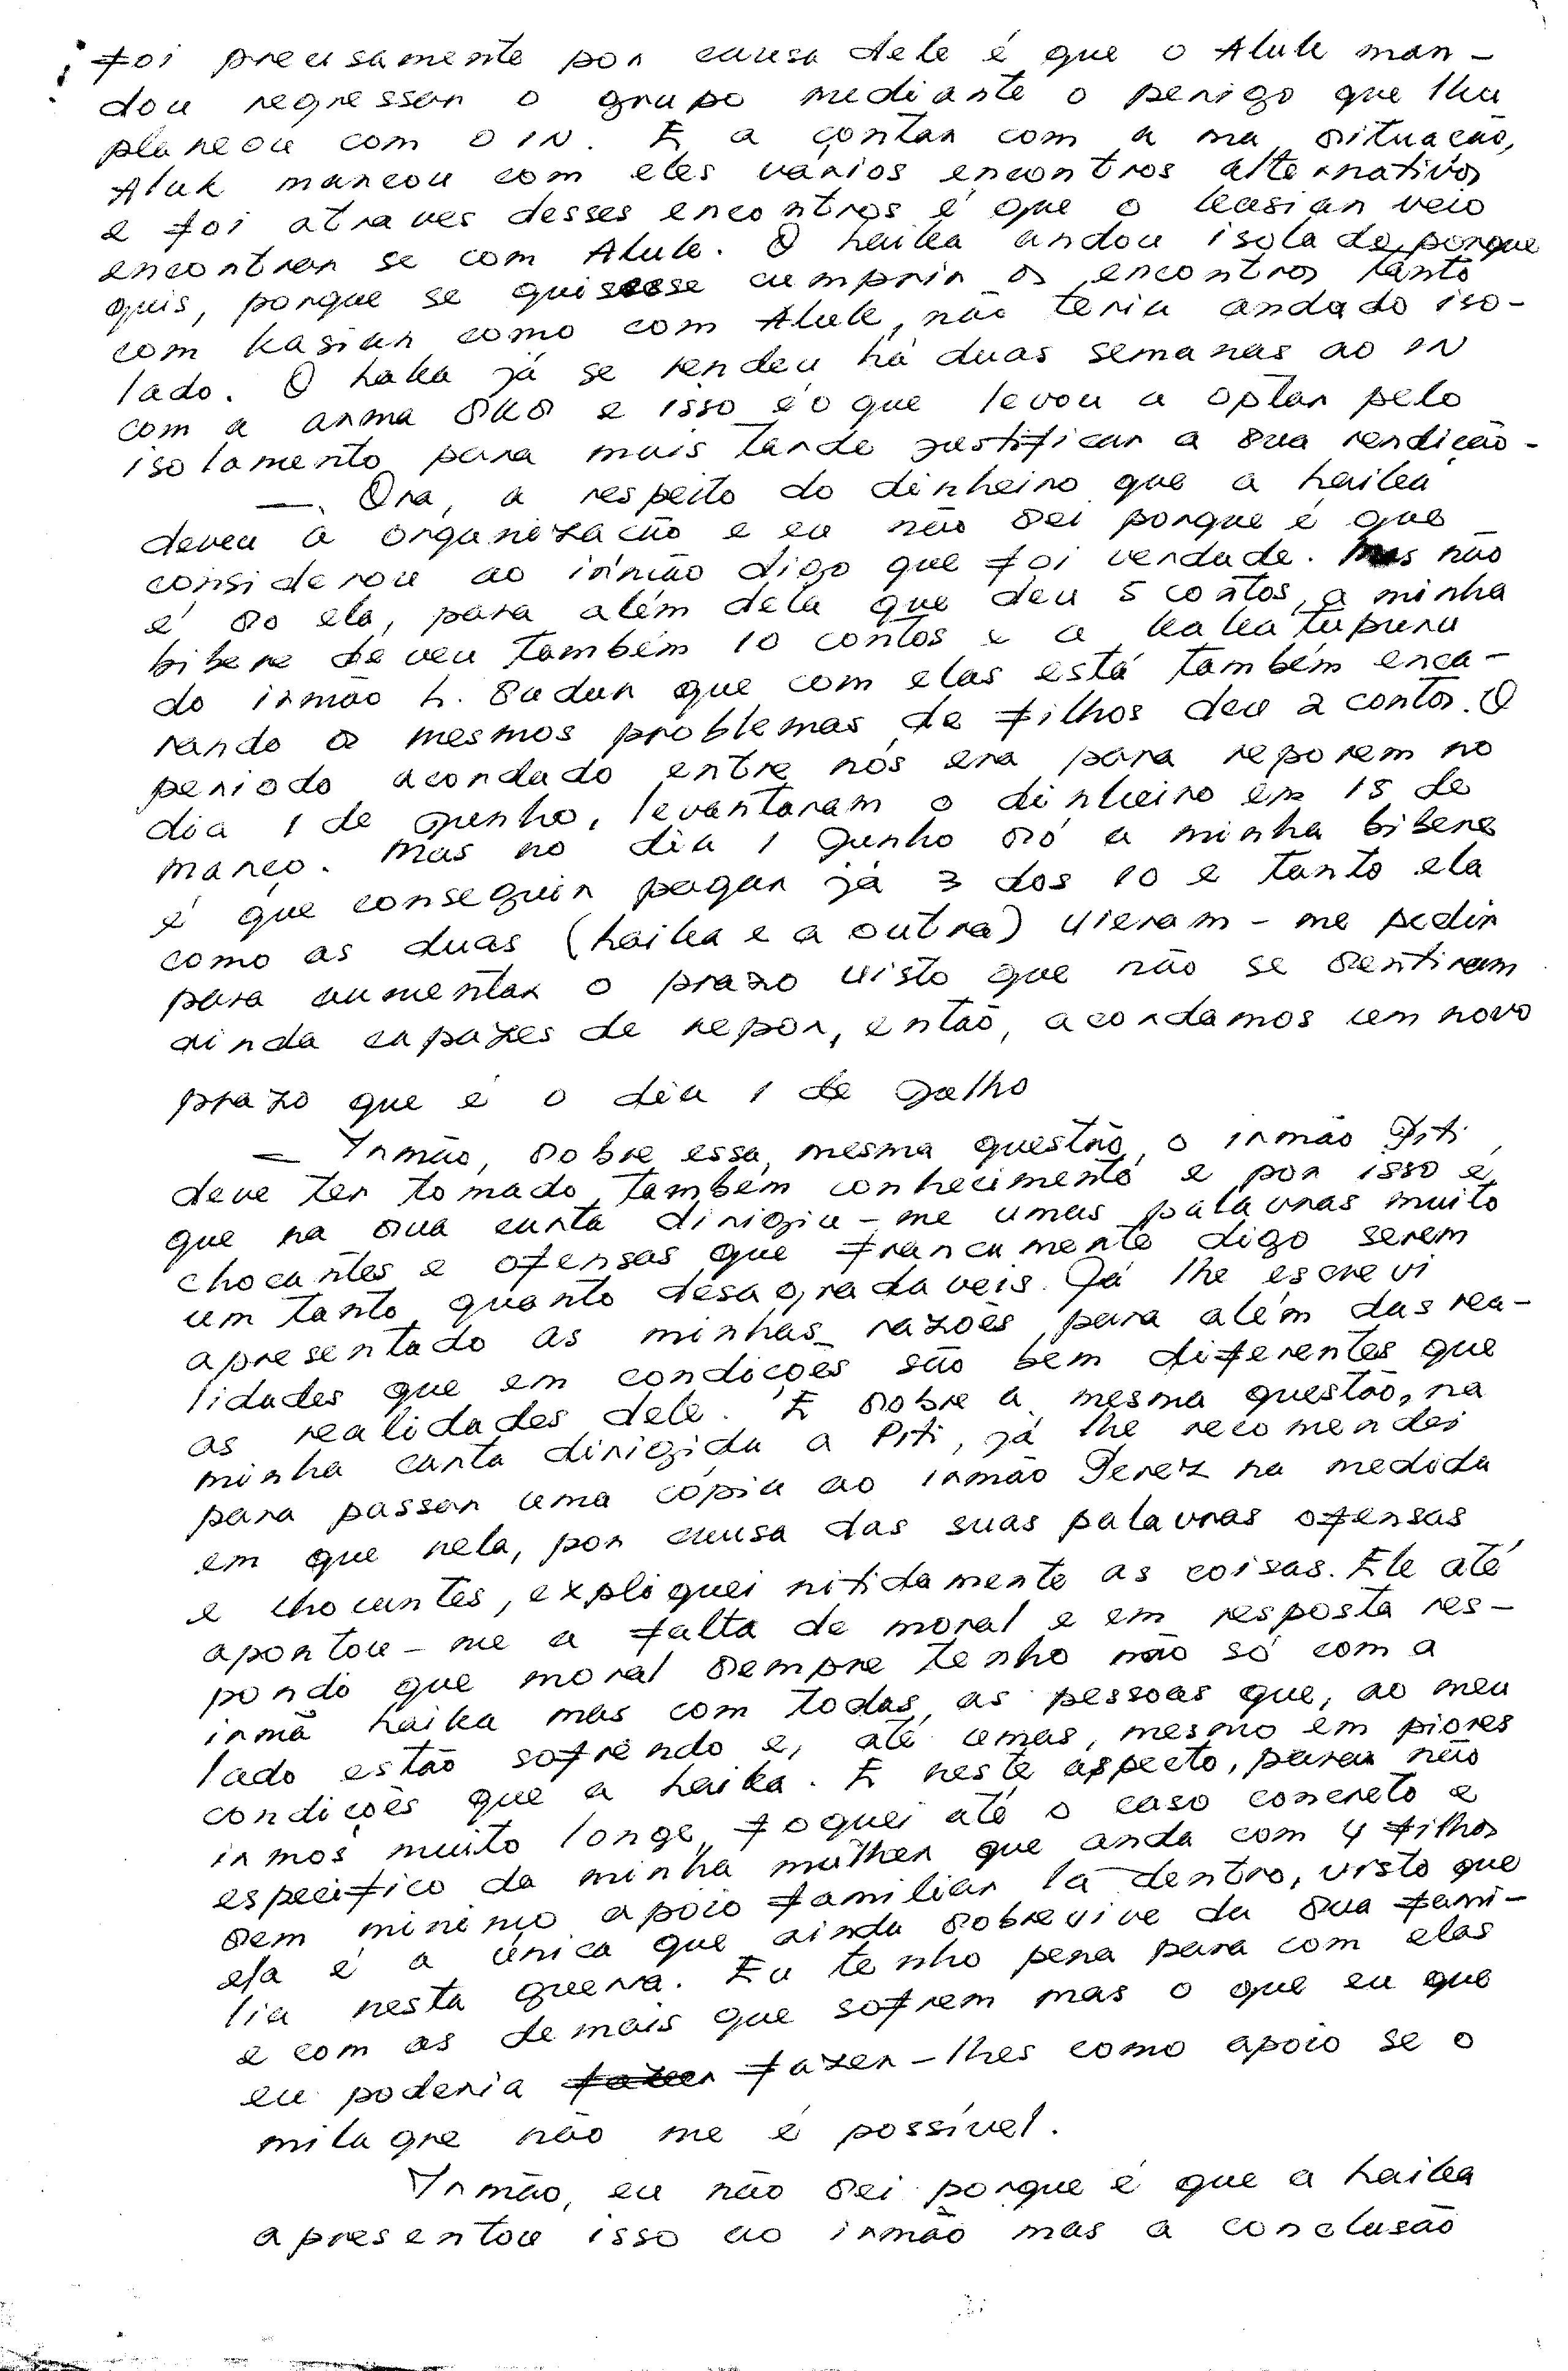 foi precisamente por causa dele é que o Aluk man-
dou regressar o grupo mediante o perigo que lhe
planeou com o IN. E a contar com a ma situação,
Aluk marcou com eles vários encontros alternativos
e foi atraves desses encontros é que o Kasian veio
encontrar se com Aluk. O Laika andou isolado porque
quis, porque se quisesse cumprir os encontros tanto
com Kasian como com Aluk, não teria andado iso-
lado. O Laka já se rendeu há duas semanas ao IN
com a arma SKS e isso é o que levou a optar pelo
isolamento para mais tarde justificar a sua rendição.
—. Ora, a respeito do dinheiro que a Laika
deveu a organização e eu não sei porque é que
considerou ao irmão digo que foi verdade. Mas não
é so ela, para além dela que deu 5 contos, a minha
bibere deveu também 10 contos e a
do irmão L. Sadan que com elas está também enca-
rando os mesmos problemas de filhos deu 2 contos. O
periodo acordado entre nós era para reporem no
dia 1 de Junho, levantaram o dinheiro em 15 de
março. Mas no dia 1 Junho só a minha bibere
é que conseguir pagar já 3 dos 10 e tanto ela
como as duas (Laika e a outra) vieram-me pedir
para aumentar o prazo visto que não se sentiram
ainda capazes de repor, então, acordamos um novo
prazo que é o dia 1 de Julho
— Irmão, sobre essa mesma questão, o irmão Piti
deve ter tomado também conhecimento e por isso é
que na sua carta dirigiu-me umas palavras muito
chocantes e ofensas que francamente digo serem
um tanto quanto desagradaveis. Já lhe escrevi
apresentado as minhas razões para além das rea-
lidades que em condições são bem diferentes que
as realidades dele. E sobre a mesma questão, na
minha carta dirigida a Piti, já lhe recomendei
para passar uma cópia ao irmão Perez na medida
em que nela, por causa das suas palavras ofensas
e chocantes, expliquei nitidamente as coisas. Ele até
apontou-me a falta de moral e em resposta res-
pondo que moral sempre tenho não só com a
irmã Laika mas com todas as pessoas que, ao meu
lado estão sofrendo e, até umas, mesmo em piores
condições que a Laika. E neste aspecto, para não
irmos muito longe, foquei até o caso concreto e
especifico da minha mulher que anda com 4 filhos
sem minimo apoio familiar lá dentro, visto que
ela é a única que ainda sobrevive da sua fami-
lia nesta guerra. Eu tenho pena para com elas
e com as demais que sofrem mas o que eu que
eu poderia fazer-lhes como apoio se o
milagre não me é possível.
Irmão, eu não sei porque é que a Laika
apresentou isso ao irmão mas a conclusão